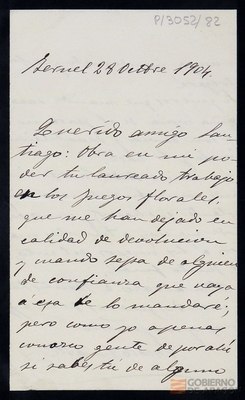 P/3052/82
Teruel 28 Octbre 1904.
Querido amigo San-
tiago: Obra en mi po-
der tu laureado trabajo
en los juegos florales,
que me han dejado en
calidad de devolucion
y cuando sepa de alguien
de confianza que vaya
á esa te lo mandaré;
pero como yo apenas
conozco gente de por ahi
si sabes tu de alguno
GOBIERNO
DE ARAGON